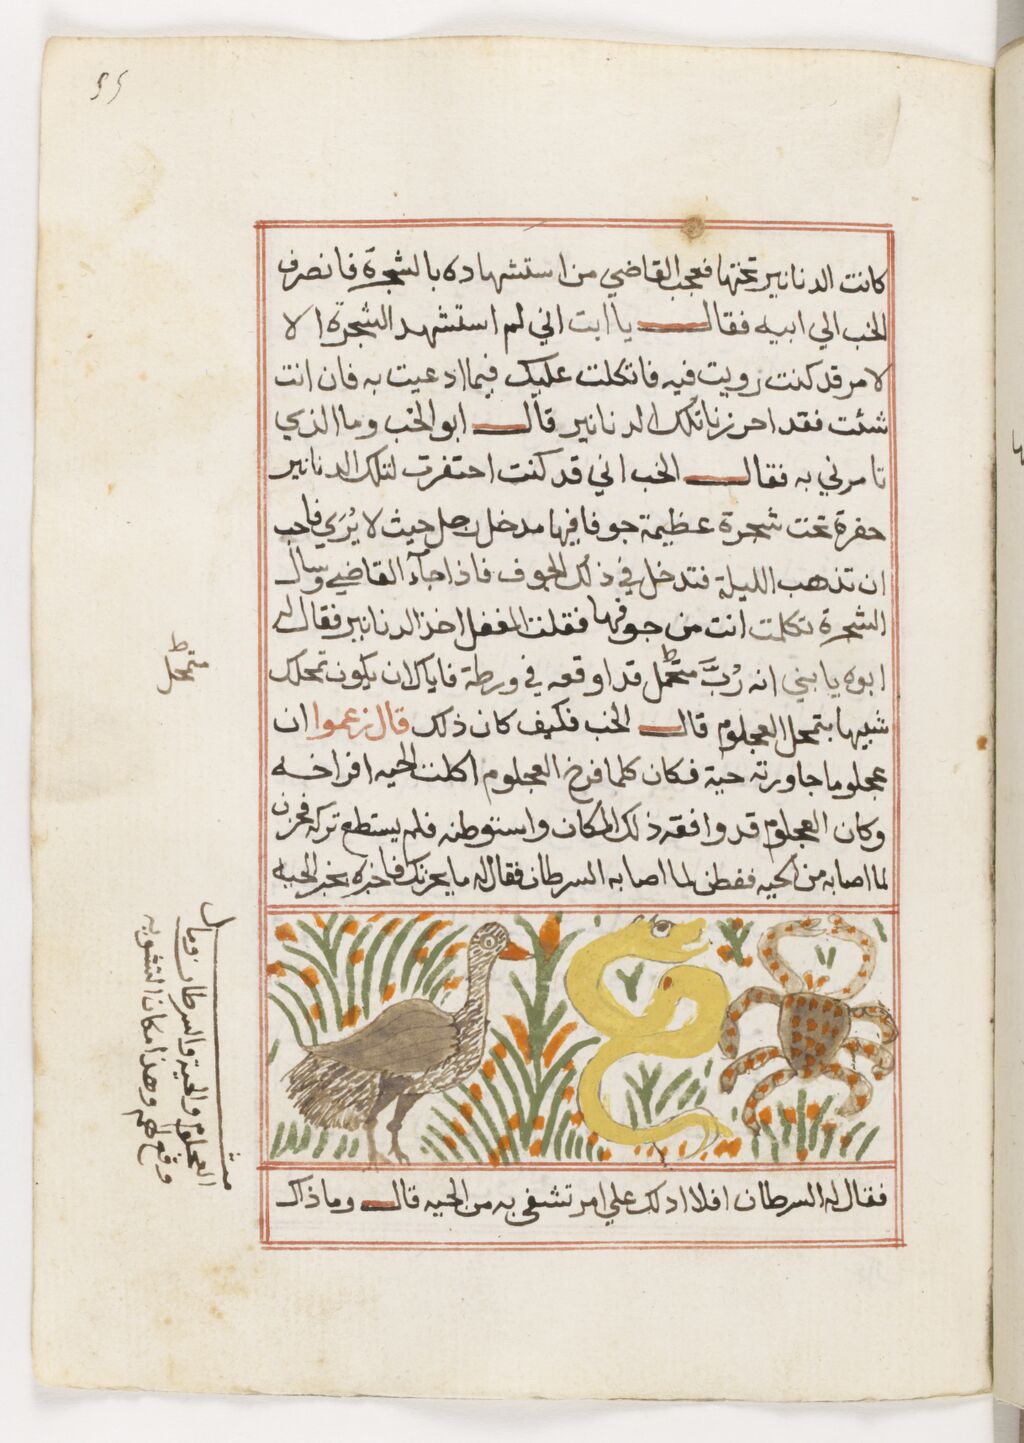 كانت الدنانير تحتها فعجب القاضي من استشهاده بالشجرة فانصرف
الخب الي ابيه فقال يا ابت اني لم استشهد الشجرة الا
لامر قد كنت رويت فيه فاتكلت عليك فيما ادعيت به فان انت
شئت فقد احرزنا تلك الدنانير قال ابو الخب وما الذي
تامرني به فقال الخب اني قد كنت احتفرت لتلك الدنانير
حفرة تحت شجرة عظيمة جوفا فيها مدخل رجل حيث لا يُرَي فاحب
ان تذهب الليلة فتدخل في ذلك الجوف فاذا جآء القاضي وسال
الشجرة تكلمت انت من جوفها فقلت المغفل اخذ الدنانير فقال له
ابوه يا بني انه رُبَّ متمحل قد اوقعه في ورطة فاياك ان يكون تمحلك
شبيها بتمحل العجلوم قال الخب فكيف كان ذلك قال زعموا ان
عجلوما جاورته حية فكان كلما فرخ العجلوم اكلت الحيه افراخه
وكان العجلوم قد وافقه ذلك المكان واستوطنه فلم يستطع تركه فحزن
لما اصابه من الحيه ففطن لما اصابه السرطان فقال له ما يحزنك فاخبره بخبر الحيه
فقال له السرطان افلا ادلك علي امر تشفي به من الحيه قال وما ذاك
متمحل
ط
مثال
العجلوم والحية والسرطان
وقع لهم وهذا مكان التشويه
55